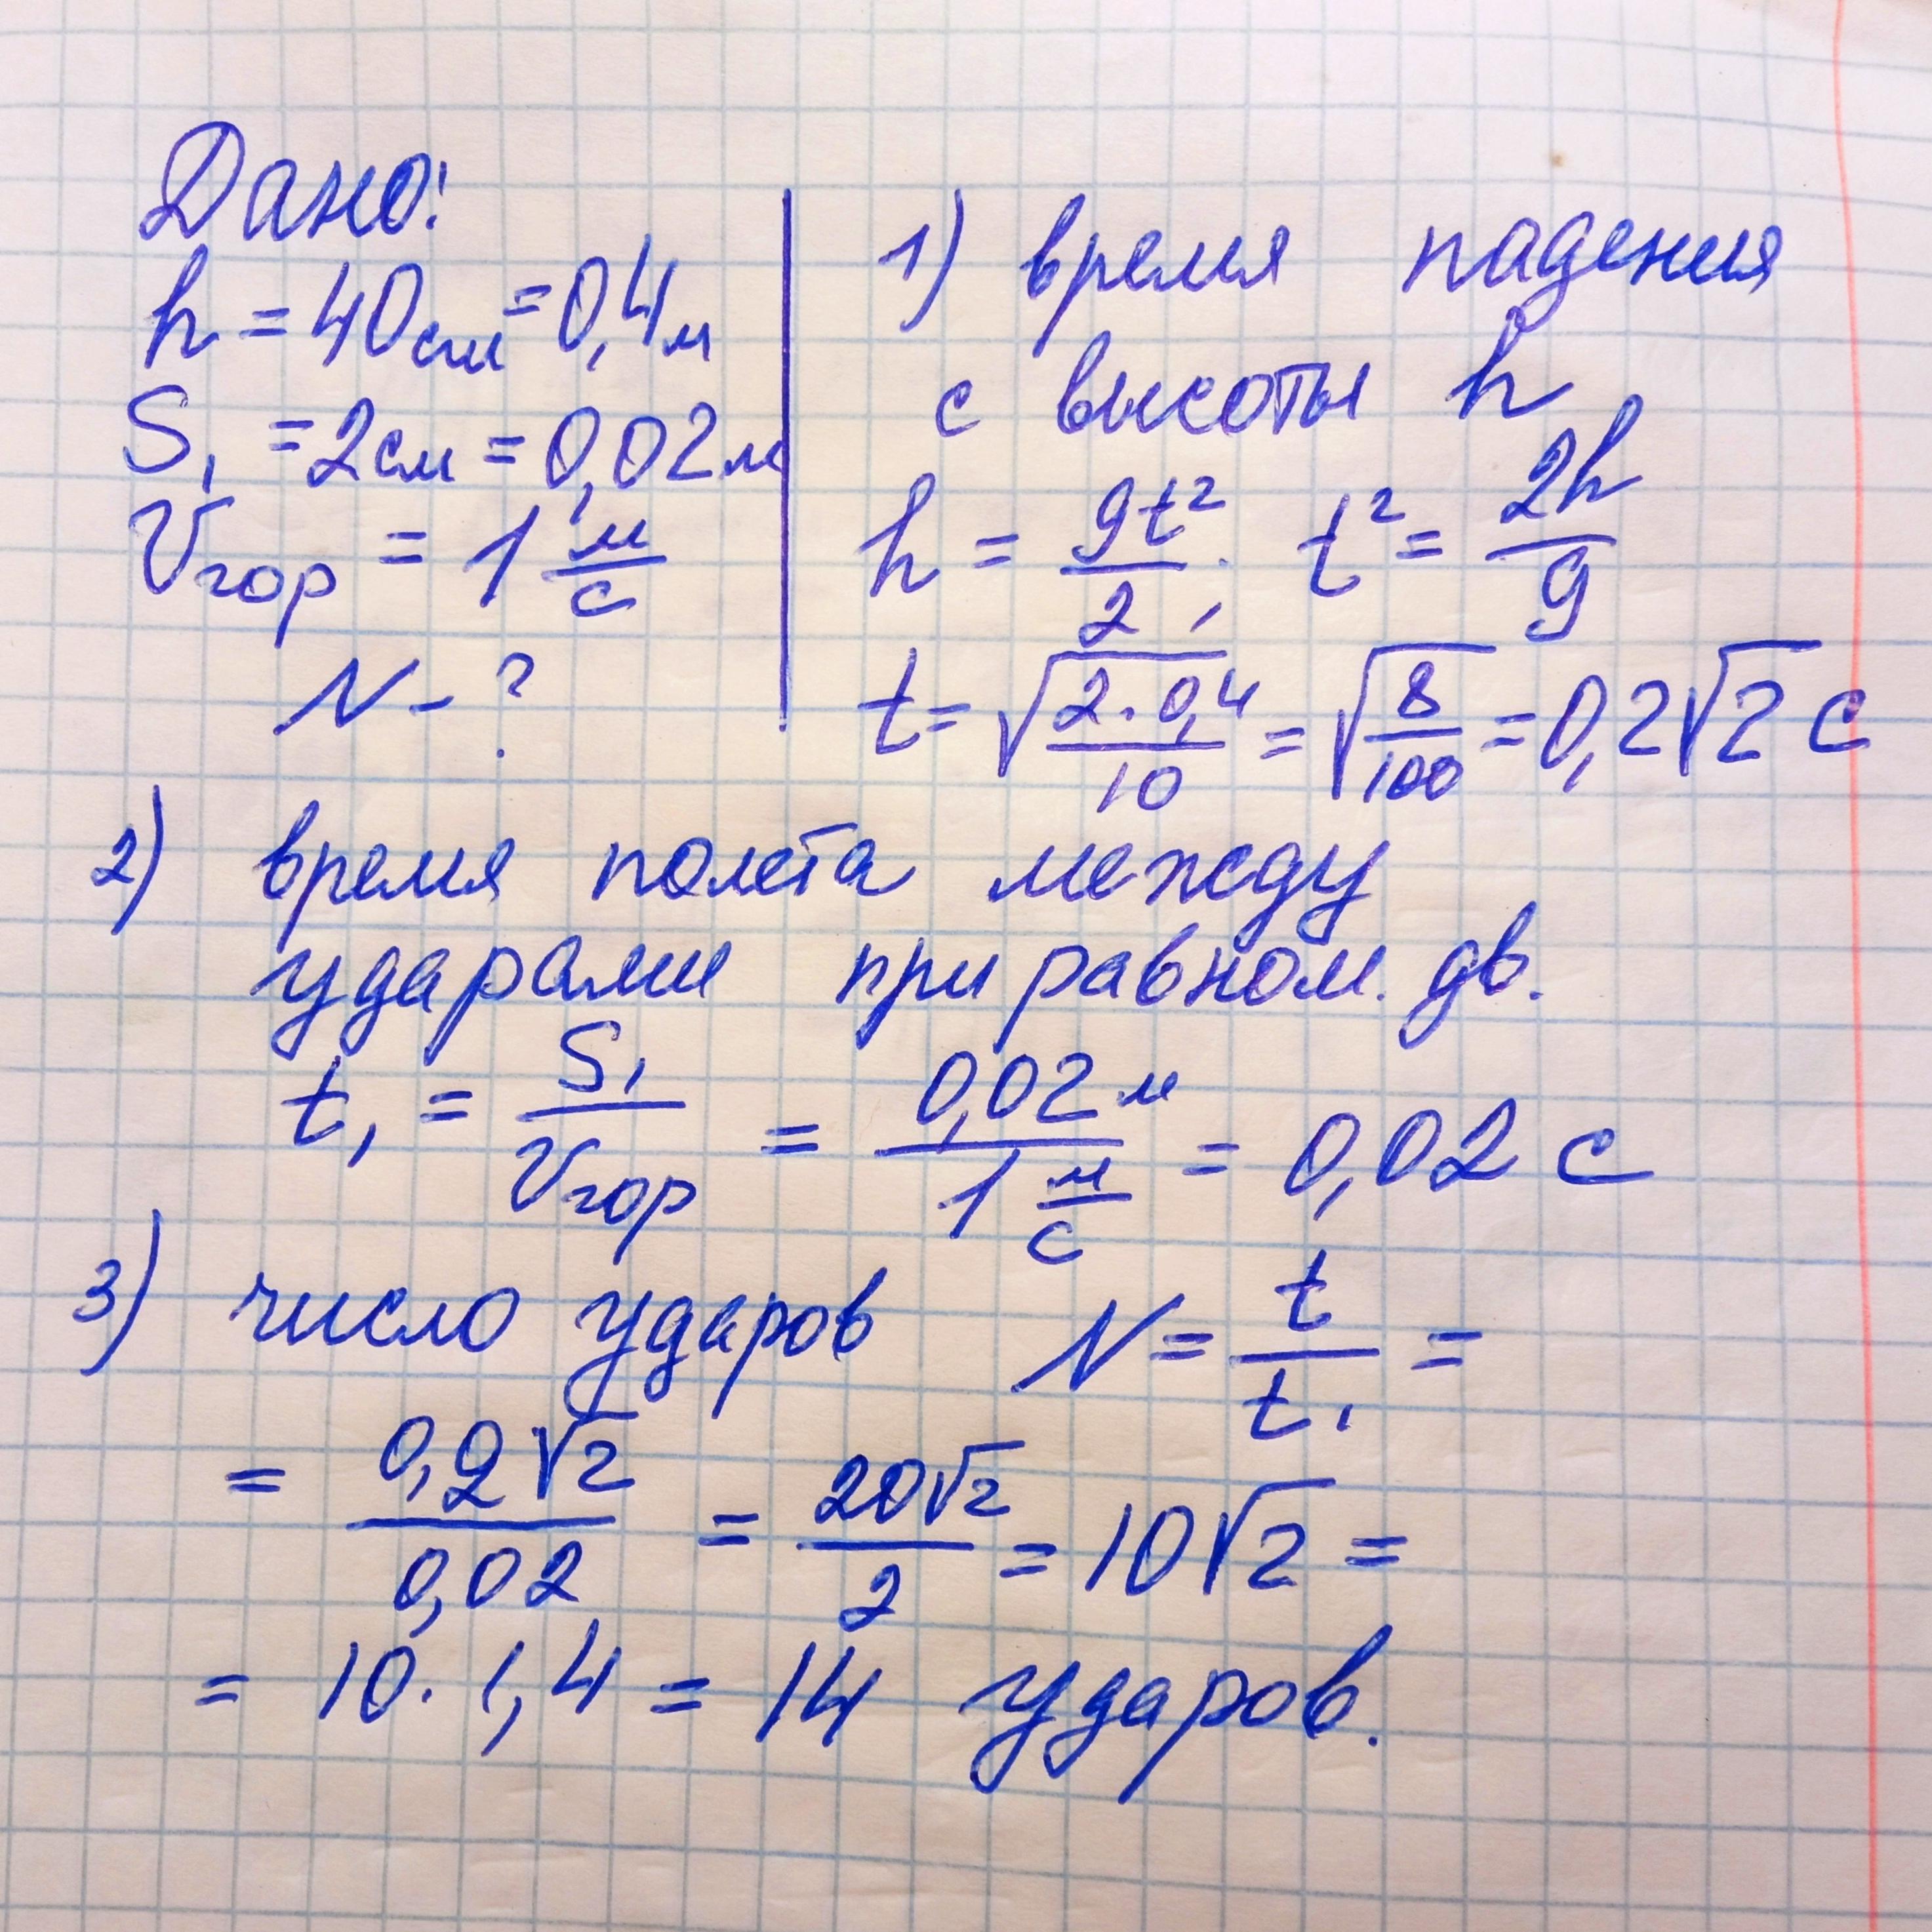 Дано:
h = 40см = 0,4м
S₁ = 2см = 0,02м
Vгор = 1 м/с
N - ?
1) время падения
с высоты h
h = gt²/2, t² = 2h/g
t = √(2·0,4/10) = √(8/100) = 0,2√2 с
2) время полета между
ударами при равном. дв.
t₁ = S₁/Vгор = 0,02м/1 м/с = 0,02 с
3) число ударов N = t/t₁ =
= 0,2√2/0,02 = 20√2/2 = 10√2 =
= 10 · 1,4 = 14 ударов.